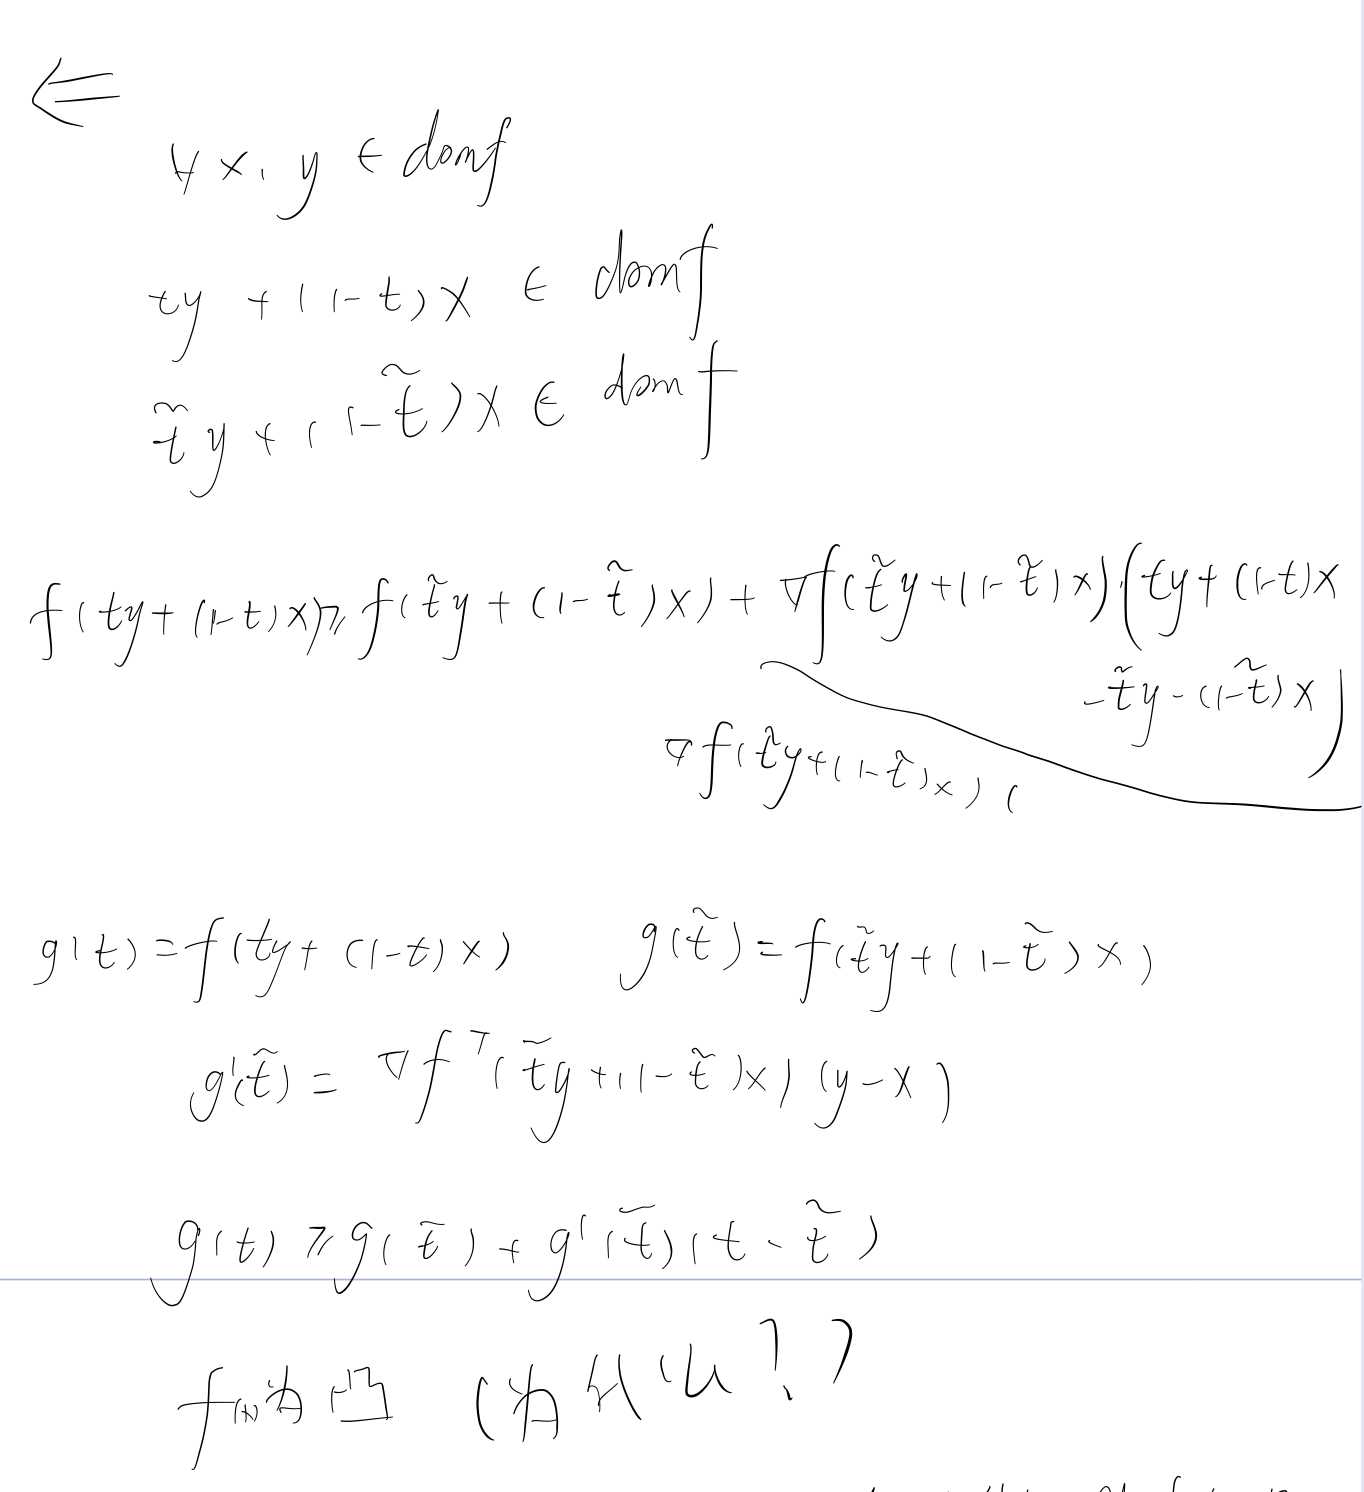 ⇐
∀ x, y ∈ domf
ty + (1-t)x ∈ domf
t̃y + (1-t̃)x ∈ domf
f(ty+(1-t)x) ≥ f(t̃y+(1-t̃)x) + ∇f(t̃y+(1-t̃)x)(ty+(1-t)x
-t̃y-(1-t̃)x)
∇f(t̃y+(1-t̃)x)(
g(t)=f(ty+(1-t)x) g(t̃)=f(t̃y+(1-t̃)x)
g'(t̃) = ∇f^T(t̃y+(1-t̃)x)(y-x)
g(t) ≥ g(t̃) + g'(t̃)(t-t̃)
f(x)为凸 (为什么?)